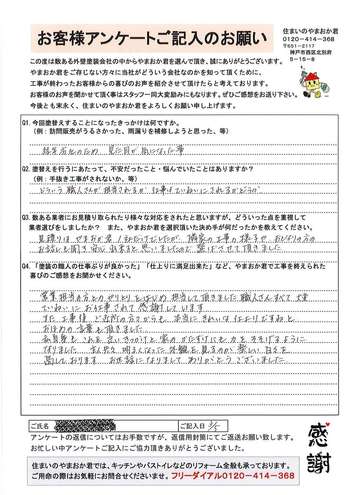 お客様アンケートご記入のお願い
住まいのやまおか君
0120-414-368
〒651-2117
神戸市西区北別府
5-15-8
この度は数ある外壁塗装会社の中からやまおか君を選んで頂き、誠にありがとうございます。
やまおか君をご存じない方々に当社がどういう会社なのかを知って頂くために、
工事が終わったお客様からの喜びのお声を紹介させて頂けたらと考えております。
お客様のお声を聞かせて頂く事はスタッフ一同大変励みにもなります。ぜひご感想をお送り下さい。
今後とも末永く、住まいのやまおか君をよろしくお願い申し上げます。
Q1. 今回塗替えすることになったきっかけは何ですか。
(例：訪問販売がうるさかった、雨漏りを補修しようと思った、等)
経年劣化のため 見た目が気になった事
Q2. 塗替えを行うにあたって、不安だったこと・悩んでいたことはありますか？
(例：手抜き工事がされないか、等)
どういう職人さんが担当されるか 仕事はていねいにされるかどうか
Q3. 数ある業者にお見積り取られたり様々な対応をされたと思いますが、どういった点を重視して
業者選びをしましたか？ また、やまおか君を選択頂いた決め手が何だったかを教えてください。
見積りはやまおか君1社だけでしたが 隣家の工事の様子や
お話しも聞き 安心出来ると思いましたので 選ばさせて頂きました
Q4. 「塗装の職人の仕事ぶりが良かった」「仕上りに満足出来た」など、やまおか君で工事を終えられた
喜びのご感想をお聞かせください。
営業担当の方とのやりとりをはじめ 担当して頂きました職人さんすべて大変
ていねいにおうち事されて 感謝しています
また工事後 ご近所の方々からも 本当にきれいなはりですねと
おほめの言葉を頂きました
なりました 明るくなった外観を見るのが楽しい日々を
過しております お世話になりまして ありがとうございました
ご氏名
ご記入日
アンケートの返信についてはお手数ですが、返信用封筒にてご返送お願い致します。
お忙しい中アンケートにご協力頂きありがとうございました。
感謝
住まいのやまおか君では、キッチンやバストイレなどのリフォーム全般も承っております。
ご用命の際はお気軽にお問合せください。フリーダイアル0120-414-368